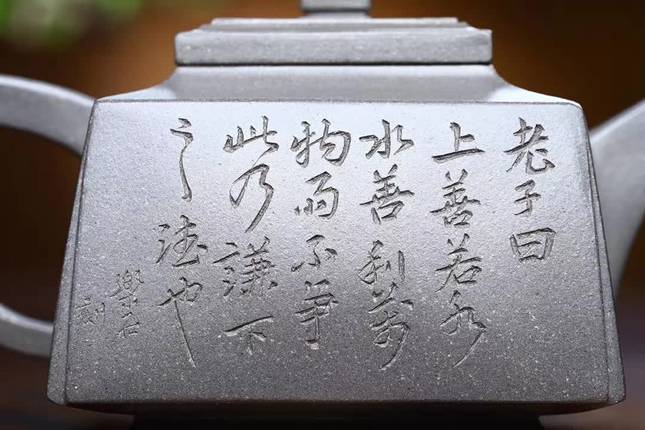 老子曰
上善若水
水善利萬
物而不爭
此乃謙下
之德也
樂石
刻